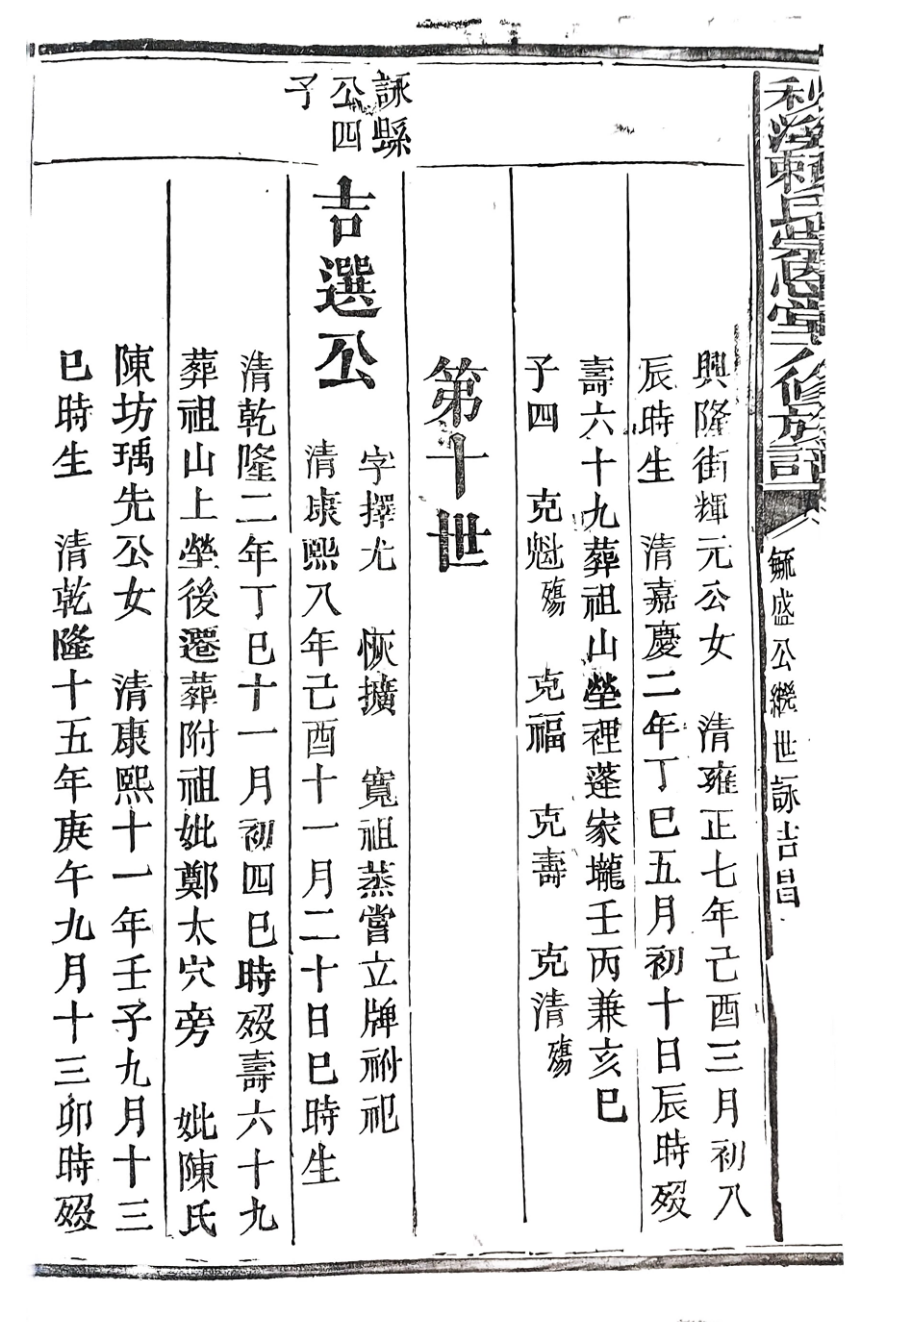 毓盛公幾世詠吉昌
興隆街輝元公女　清雍正七年己酉三月初八
辰時生　清嘉慶二年丁巳五月初十日辰時歿
壽六十九葬祖山塋裡蓬家壠壬丙兼亥巳
子四　克魁殤　克福　克壽　克清殤
第十世
詠縣
公四
子
吉選公
字擇尤　恢擴　寬祖蒸嘗立牌祔祀
清康熙八年己酉十一月二十日巳時生
清乾隆二年丁巳十一月初四巳時歿壽六十九
葬祖山上塋後遷葬附祖妣鄭太穴旁　妣陳氏
陳坊瑀先公女　清康熙十一年壬子九月十三
巳時生　清乾隆十五年庚午九月十三卯時歿